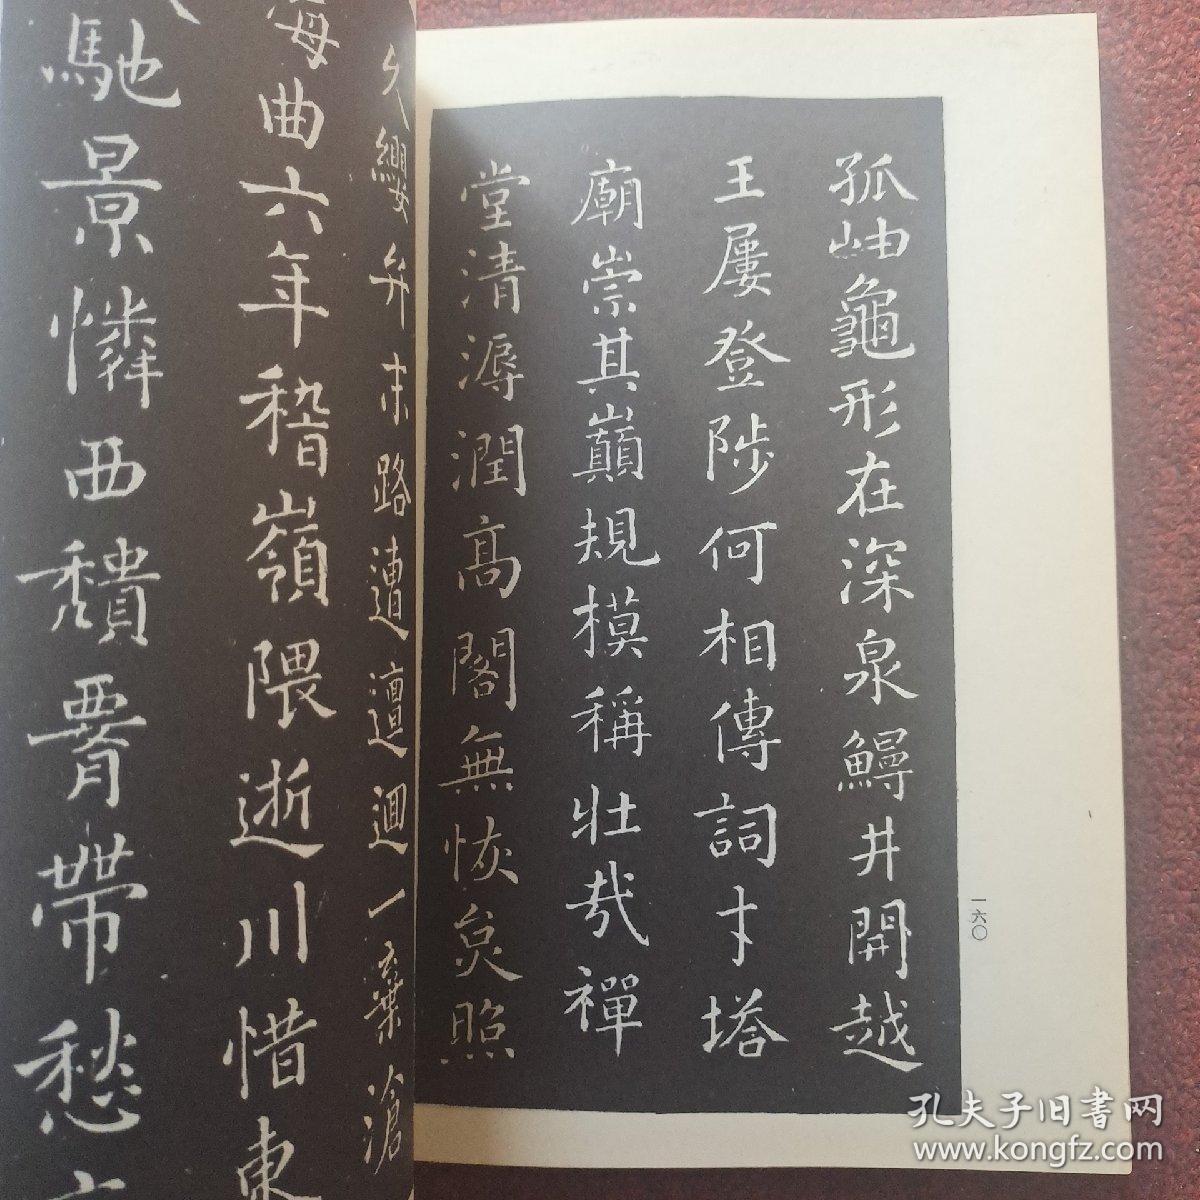 孤岫龜形在深泉鰻井開越
王屢登陟何相傳詞才塔
廟崇其巔規模稱壯哉禪
堂清溽潤高閣無恢炱照
一六〇
久纓弁末路遭邅迴一棄滄
海曲六年稽嶺隈逝川惜東
馳景憐西頹膂帶愁
孔夫子旧書网
www.kongfz.com